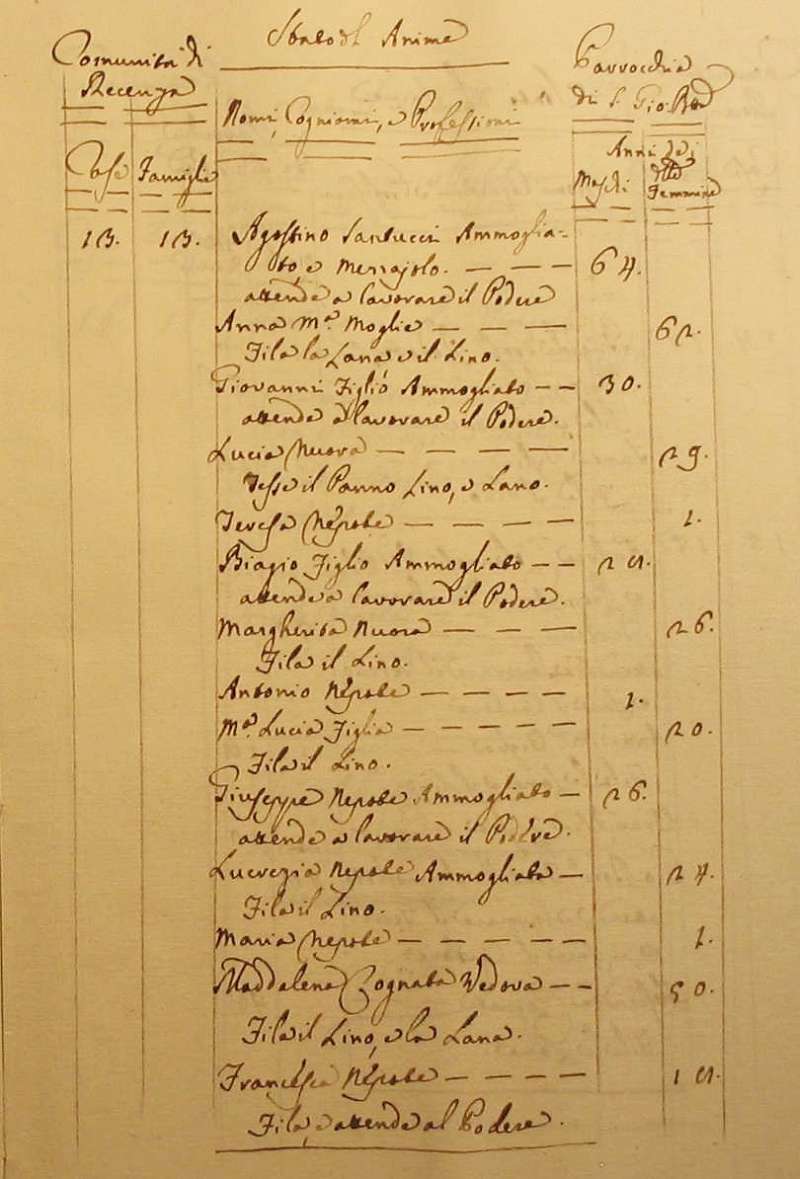 Stato dl Anime
Comunità di
Recenza
Parrocchia
di S. Gio: Bta
Nomi, Cogniomi, e Professioni
Anni dei
Case Famiglie Maschi dtte Femmine
13. 13. Agostino Santucci Ammoglia-
to, e Mezzajolo. — — — 64.
attende a lavorare il Podere
Anna Ma. Moglie — — — 62.
Fila la Lana e il Lino.
Giovanni Figlio Ammogliato — — 30.
attende a lavorare il Podere.
Lucia Nuora — — — — 29.
Tesse il Panno Lino, e Lano.
Teresa Nepote — — — — 1.
Biagio Figlio Ammogliato — —
attende a lavorare il Podere.
Margherita Nuora — — — 26.
Fila il Lino.
Antonio Nepote — — — — 1.
Ma. Lucia Figlia — — — — 20.
Fila il Lino.
Giuseppe Nepote Ammogliato — 26.
attende a lavorare il Podere.
Lucrezia Nepote Ammogliata — 24.
Fila il Lino.
Maria Nepote — — — — 1.
Maddalena Cognata Vedova — — 50.
Fila il Lino, e la Lana.
Francesca Nepote — — — —
Fila, e attende al Podere.